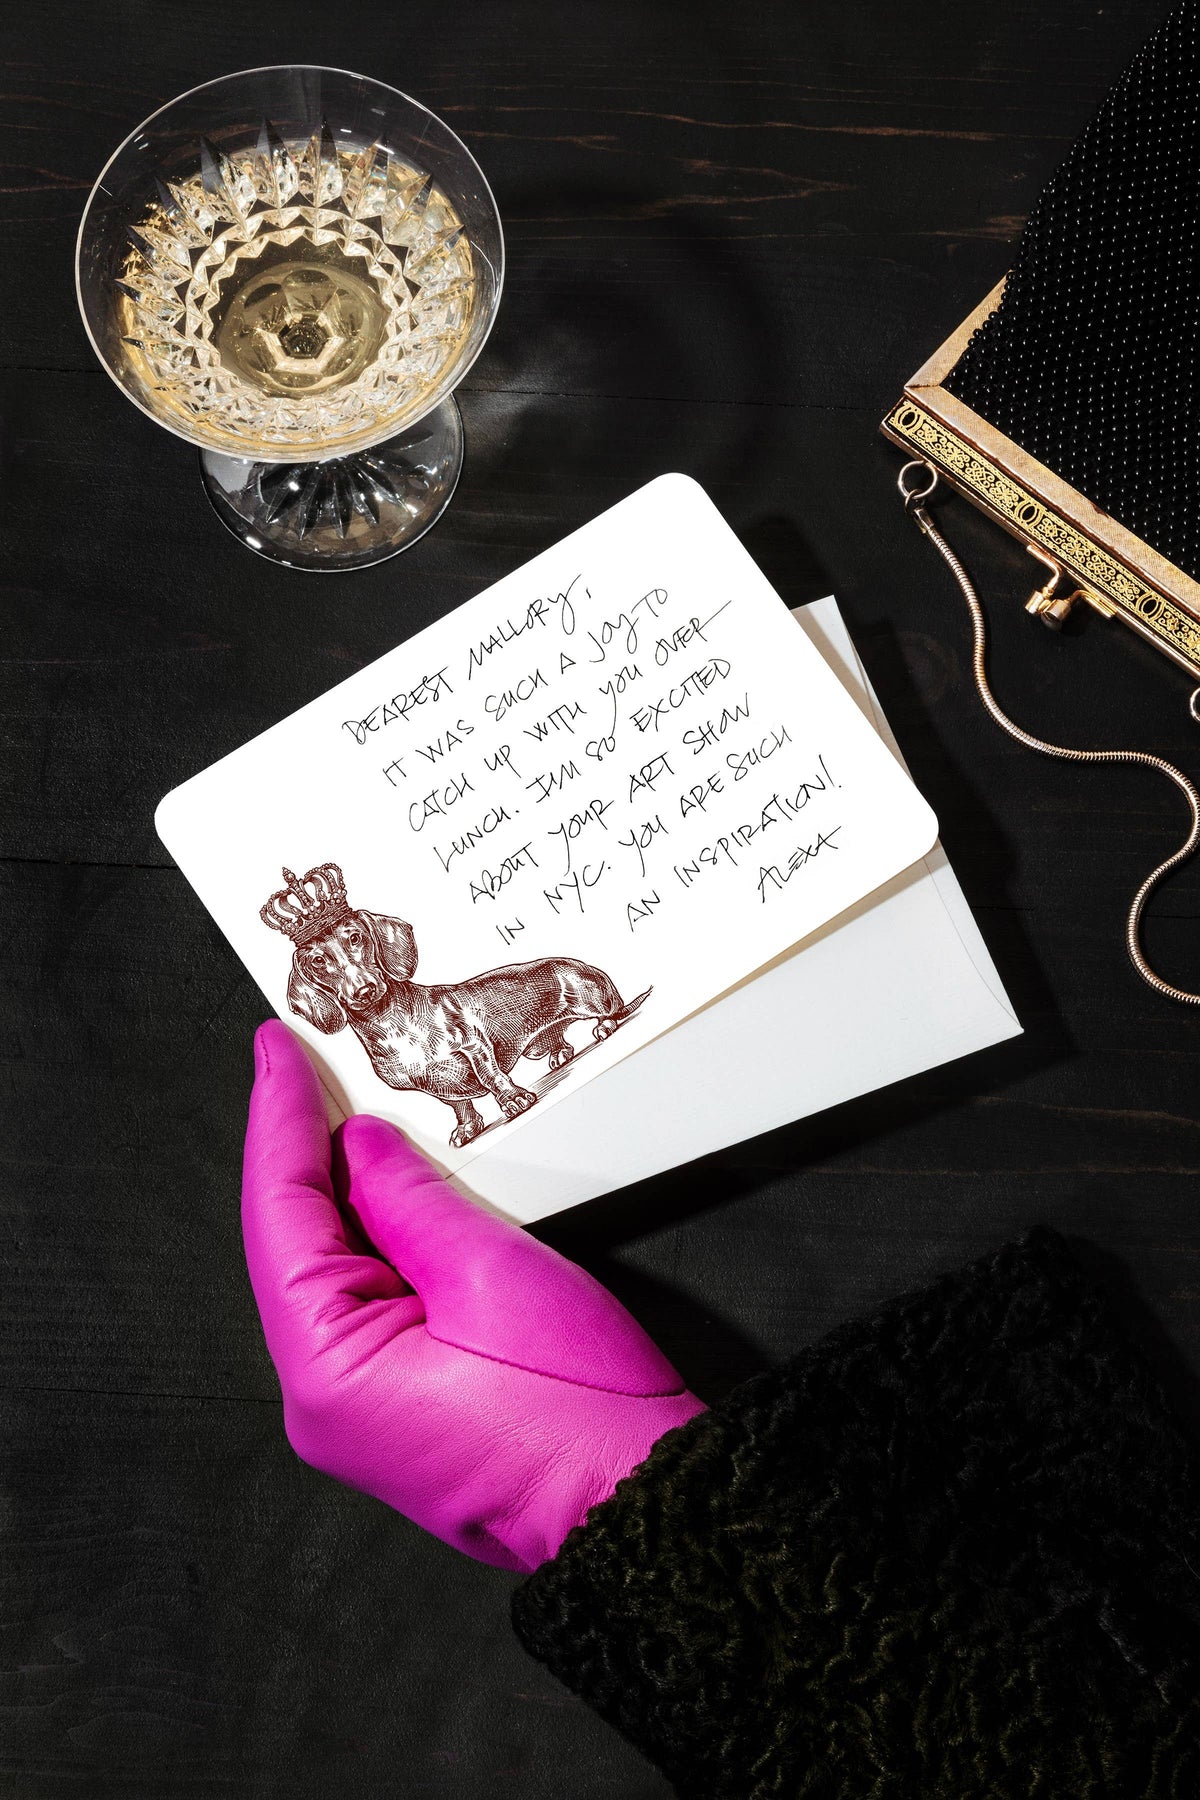 DEAREST MALLORY,
IT WAS SUCH A JOY TO
CATCH UP WITH YOU OVER
LUNCH. I'M SO EXCITED
ABOUT YOUR ART SHOW
IN NYC. YOU ARE SUCH
AN INSPIRATION!
ALEXA